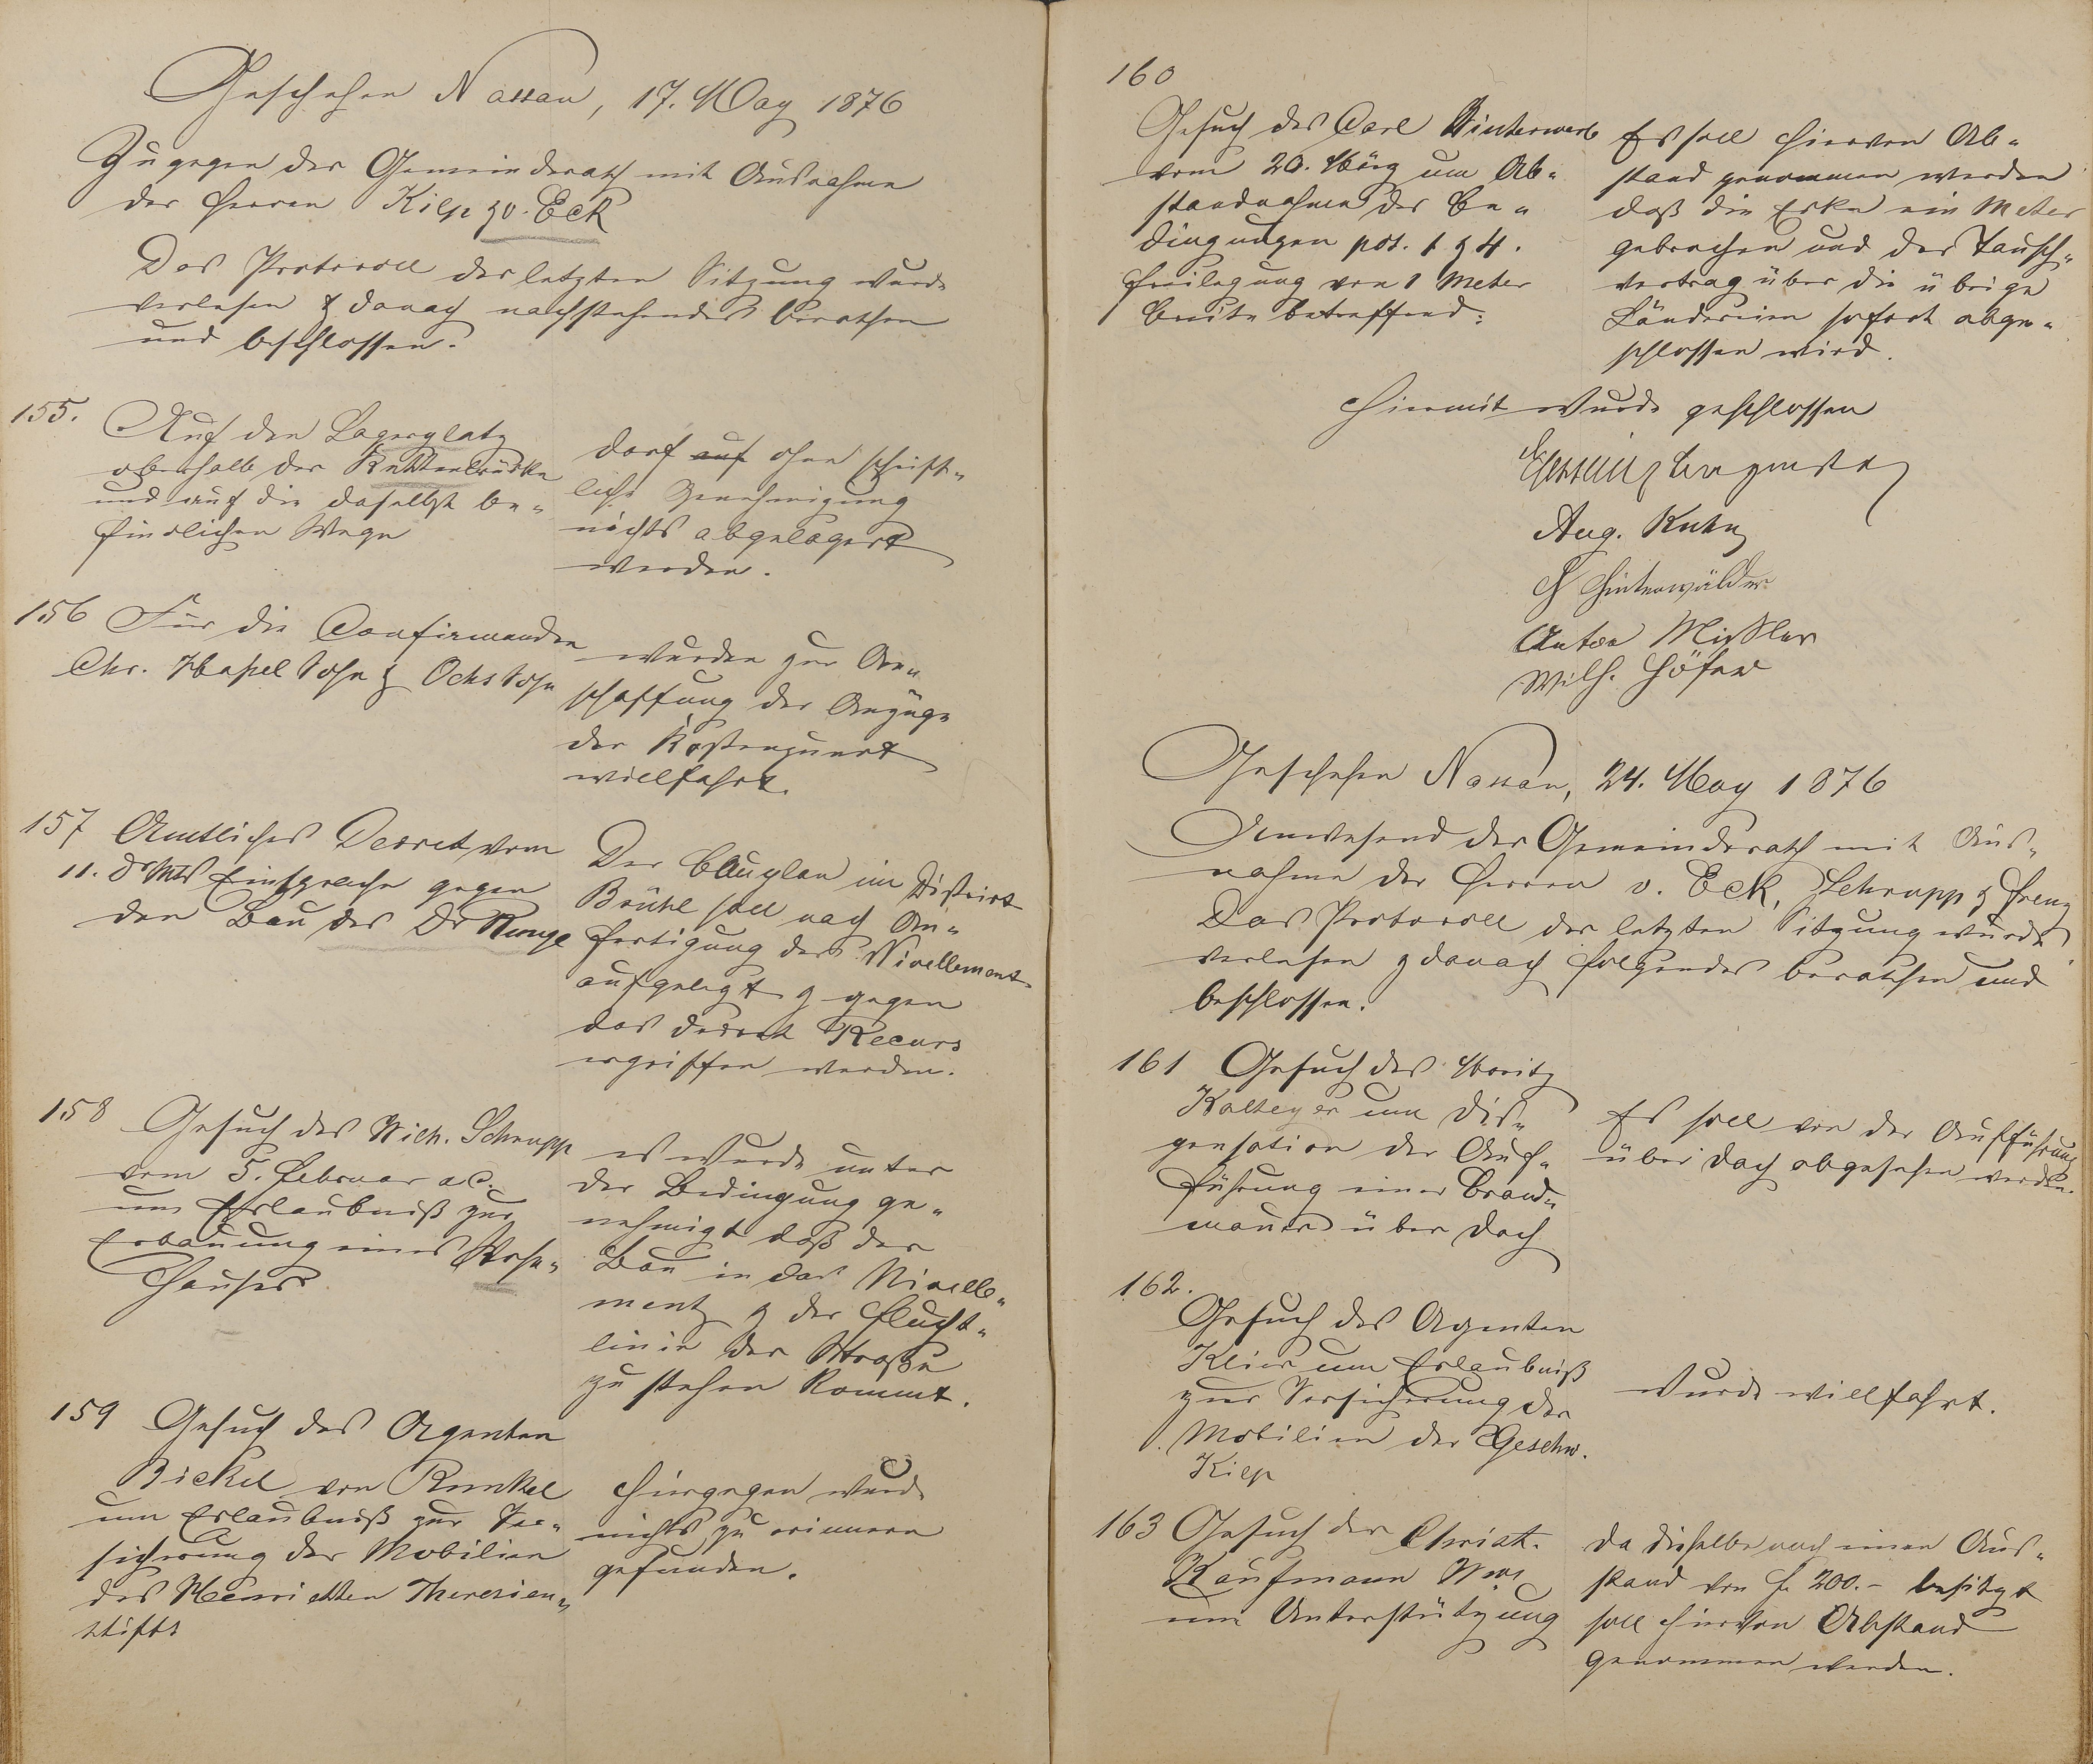 Geschehen Nassau, 17. May 1876
Zugegen der Gemeinderath mit Ausnahme
der Herren Kilp & v. Eck
Das Protocoll der letzten Sitzung wurde
verlesen & danach nachstehendes berathen
und beschlossen.
155.
Auf den Lagerplatz
oberhalb der Kettenbrücke
und auf die daselbst be-
findlichen Wege
darf auf ohne schrift-
liche Genehmigung
nichts abgelagert
werden.
156 Für die Confirmanden
Chr. Hapel Sohn & Ochs Sohn
wurden zur An-
schaffung der Anzüge
der Kostenpunkt
willfahrt.
157 Amtliches Decret vom
11. d. Mts Einsprache gegen
den Bau des Dr Runge
Der Bauplan im District
Brühl soll nach An-
fertigung des Nivellement
aufgelegt & gegen
das Decret Recurs
ergriffen werden.
158 Gesuch des Wilh. Schrupp
vom 5. Februar a.c.
um Erlaubniß zur
Erbauung eines Wohn-
hauses
es wurde unter
der Bedingung ge-
nehmigt daß der
Bau in das Nivelle-
ment & der Flucht-
linie der Straße
zu stehen kommt.
159 Gesuch des Agenten
Bickel von Runkel
um Erlaubniß zur Ver-
sicherung der Mobilien
des Henrietten Theresien-
stifts
Hiergegen wurde
nichts zu erinnern
gefunden.
160
Gesuch des Carl Winterwerb
vom 20. März um Ab-
standnahme der Be-
dingungen pos. 1 & 4.
Freilegung von 1 Meter
Breite betreffend:
Es soll hiervon Ab-
stand genommen werden
daß die Ecke ein Meter
gebrochen und der Tausch-
vertrag über die übrige
Ländereien sofort abge-
schlossen wird.
Hiermit wurde geschlossen
Aug. Kuhn
Hinterwälder
Anton Mißler
Wilh. Höfer
Geschehen Nassau, 24. May 1876
Anwesend der Gemeinderath mit Aus-
nahme der Herren v. Eck, Schrupp & Henz
Das Protocoll der letzten Sitzung wurde
verlesen & danach folgendes berathen und
beschlossen.
161 Gesuch des Moritz
Kalteyer um Dis-
pensation der Auf-
führung einer Brand-
mauer über Dach
Es soll von der Aufführung
über Dach abgesehen werden.
162.
Gesuch des Agenten
Klier um Erlaubniß
zur Versicherung der
Mobilien der Geschw.
Kilp
Wurde willfahrt.
163 Gesuch der Christ.
Kaufmann Wwe
um Unterstützung
da dieselbe noch einen Aus-
stand von f. 200.- besitzt
soll hiervon Abstand
genommen werden.